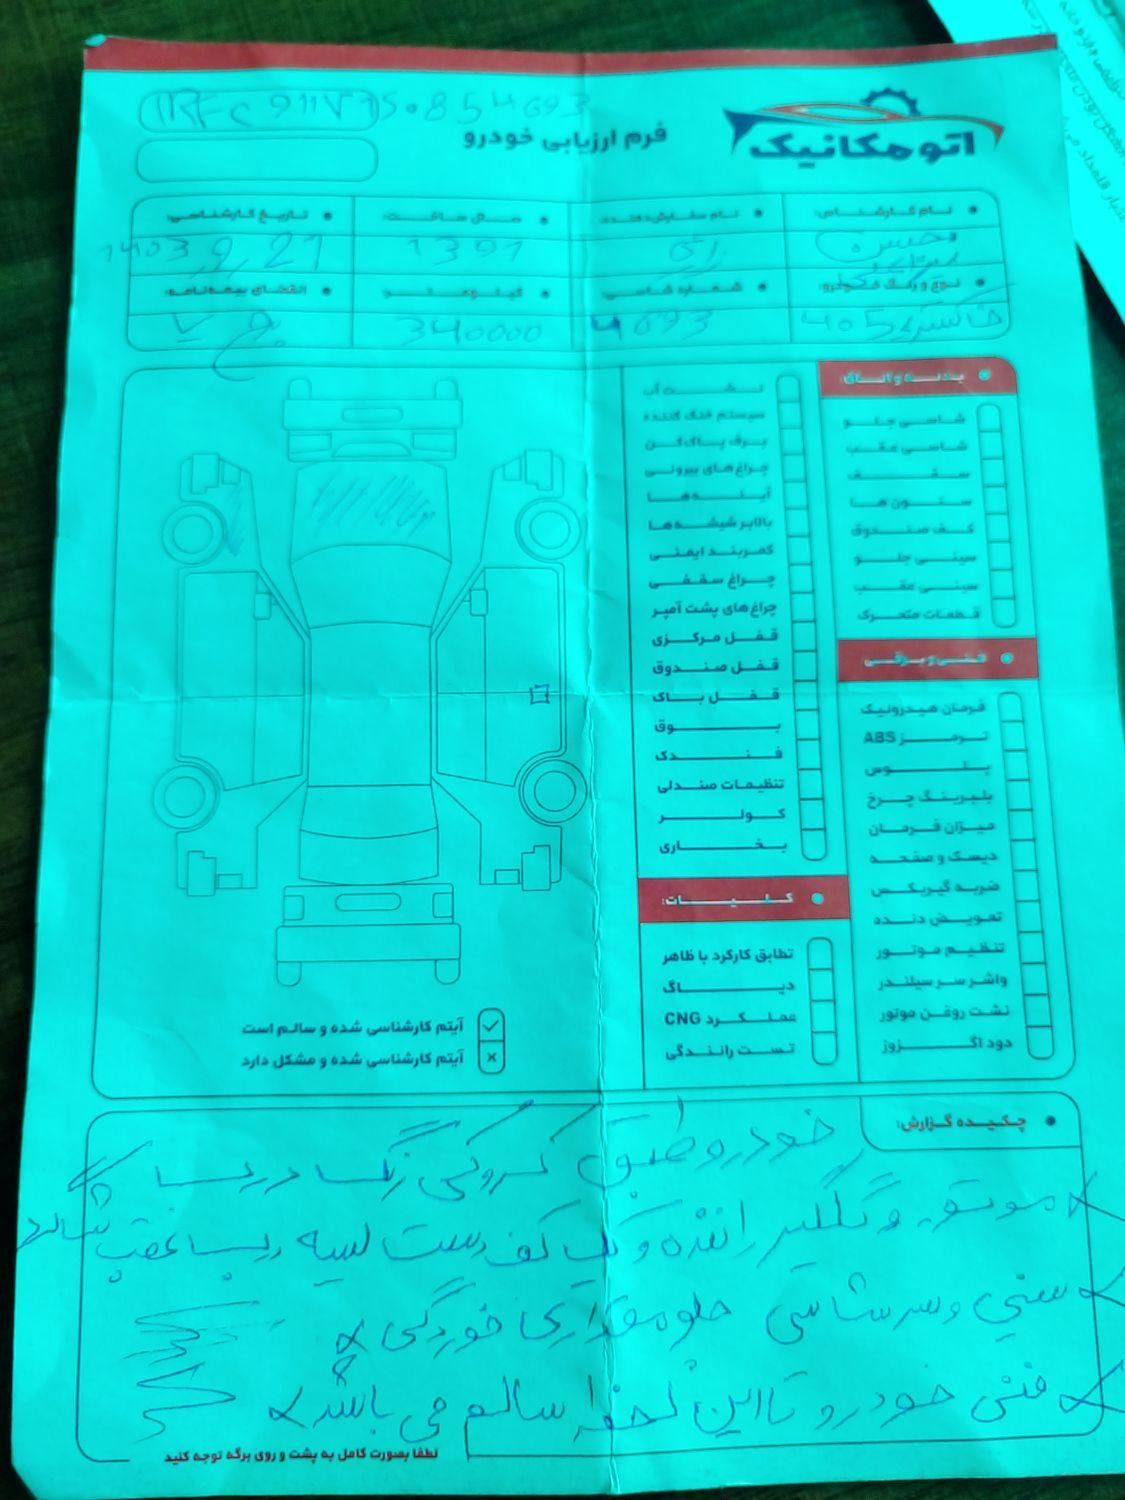 اتومکانیک
فرم ارزیابی خودرو
نام کارشناس:
نام سفارش دهنده:
سال ساخت:
تاریخ کارشناسی:
محسن
1391
1403
نوع و رنگ خودرو:
شماره شاسی:
کیلومتر
انقضای بیمه‌نامه:
خاکستری 405
4693
340000
بدنه و اتاق:
شاسی جلو
شاسی عقب
سقف
ستون ها
کف صندوق
سینی جلو
سینی عقب
قطعات متحرک
فنی و برقی
فرمان هیدرولیک
ترمز ABS
پلوس
بلبرینگ چرخ
میزان فرمان
دیسک و صفحه
ضربه گیربکس
تعویض دنده
تنظیم موتور
واشر سر سیلندر
نشت روغن موتور
دود اگزوز
نشت آب
سیستم خنک کننده
برف پاک‌کن
چراغ‌های بیرونی
آینه‌ها
بالابر شیشه‌ها
کمربند ایمنی
چراغ سقفی
چراغ‌های پشت آمپر
قفل مرکزی
قفل صندوق
قفل باک
بوق
فندک
تنظیمات صندلی
کولر
بخاری
کلیات:
تطابق کارکرد با ظاهر
دیاگ
عملکرد CNG
تست رانندگی
آیتم کارشناسی شده و سالم است
آیتم کارشناسی شده و مشکل دارد
چکیده گزارش:
خودرو طبق کروکی رنگ
موتور و گلگیر راننده و
سینی و سرشاسی جلو مقداری خوردگی
فنی خودرو تا این لحظه سالم می باشد
لطفا بصورت کامل به پشت و روی برگه توجه کنید